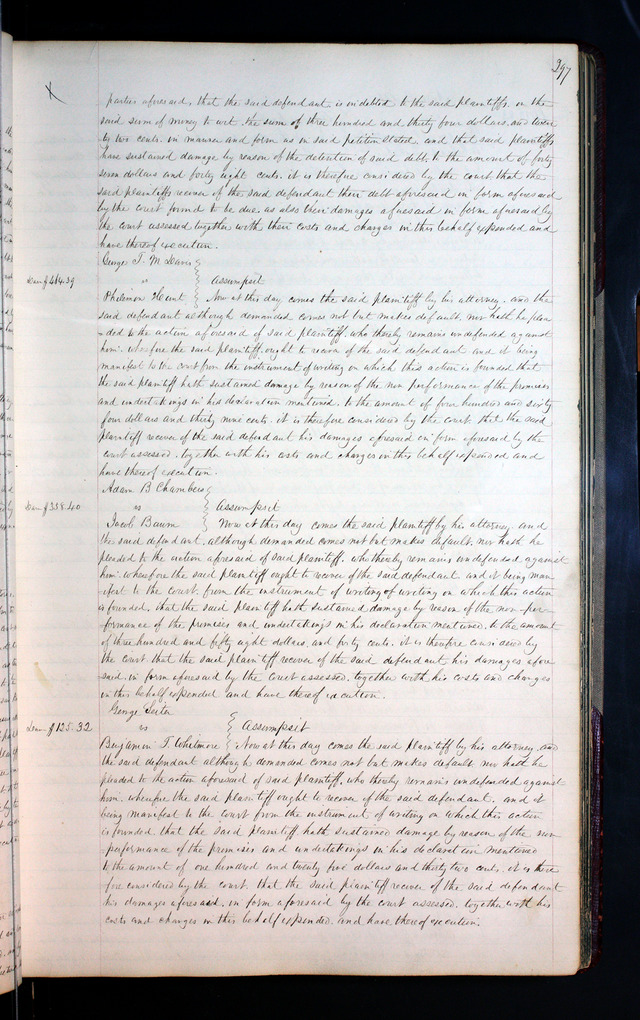 297
parties aforesaid, that the said defendant is indebted to the said plaintiffs in the
said sum of money to wit. the sum of three hundred and thirty four dollars and twen
ty two cents. in manner and form as in said petition stated. and that said plaintiffs
have sustained damage by reason of the detention of said debt, to the amount of forty
seven dollars and forty eight cents. it is therefore considered by the court that the
said plaintiffs recover of the said defendant their debt aforesaid in form aforesaid
by the court found to be due. as also their damages aforesaid in form aforesaid by
the court assessed together with their costs and charges in this behalf expended and
have thereof execution.
George T. M. Davis
Dam $464.39 vs Assumpsit
Philemon Hunt Now at this day comes the said plaintiff by his attorney. and the
said defendant although demanded comes not but makes default. nor hath he plea
ded to the action aforesaid of said plaintiff. who thereby remains undefended against
him. wherefore the said plaintiff ought to recover of the said defendant and it being
manifest to the court from the instrument of writing on which this action is founded that
the said plaintiff hath sustained damage by reason of the non performance of the promises
and undertakings in his declaration mentioned. to the amount of four hundred and sixty
four dollars and thirty nine cents. it is therefore considered by the court. that the said
plaintiff recover of the said defendant his damages aforesaid in form aforesaid by the
court assessed. together with his costs and charges in this behalf expended and
have thereof execution.
Adam B Chambers
Dam $358.40 vs Assumpsit
Jacob Baum Now at this day comes the said plaintiff by his attorney. and
the said defendant. although demanded comes not but makes default. nor hath he
pleaded to the action aforesaid of said plaintiff. who thereby remains undefended against
him. wherefore the said plaintiff ought to recover of the said defendant and it being man
ifest to the court. from the instrument of writing of writing on which this action
is founded. that the said plaintiff hath sustained damage by reason of the non-per-
formance of the promises and undertakings in his declaration mentioned. to the amount
of three hundred and fifty eight dollars. and forty cents. it is therefore considered by
the court that the said plaintiff recover of the said defendant his damages afore
said. in form aforesaid by the court assessed. together with his costs and charges
in this behalf expended and have thereof execution.
George
Dam $125.32 vs Assumpsit
Benjamin T. Whitmore Now at this day comes the said plaintiff by his attorney. and
the said defendant although demanded comes not but makes default nor hath he
pleaded to the action aforesaid of said plaintiff. who thereby remains undefended against
him. wherefore the said plaintiff ought to recover of the said defendant. and it
being manifest to the court from the instrument of writing on which this action
is founded that the said plaintiff hath sustained damage by reason of the non
performance of the promises and undertakings in his declaration mentioned
to the amount of one hundred and twenty five dollars and thirty two cents. it is there
fore considered by the court. that the said plaintiff recover of the said defendant
his damages aforesaid. in form aforesaid by the court assessed. together with his
costs and charges in this behalf expended. and have thereof execution.